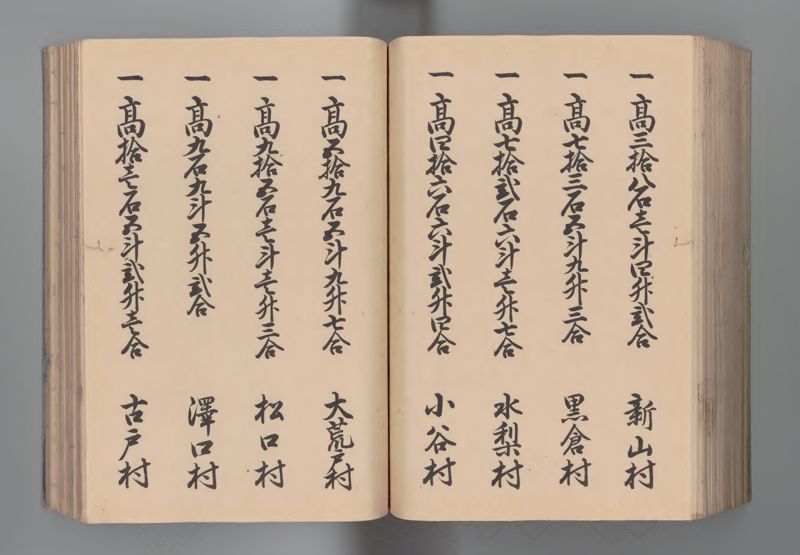 一 高三拾八石壱斗四升弐合 新山村
一 高七拾三石五斗九升三合 黒倉村
一 高七拾弐石六斗壱升七合 水梨村
一 高四拾六石六斗弐升四合 小谷村
一 高五拾九石五斗九升七合 大荒戸村
一 高九拾五石壱斗壱升三合 松口村
一 高九石九斗五升弐合 澤口村
一 高拾壱石五斗弐升壱合 古戸村